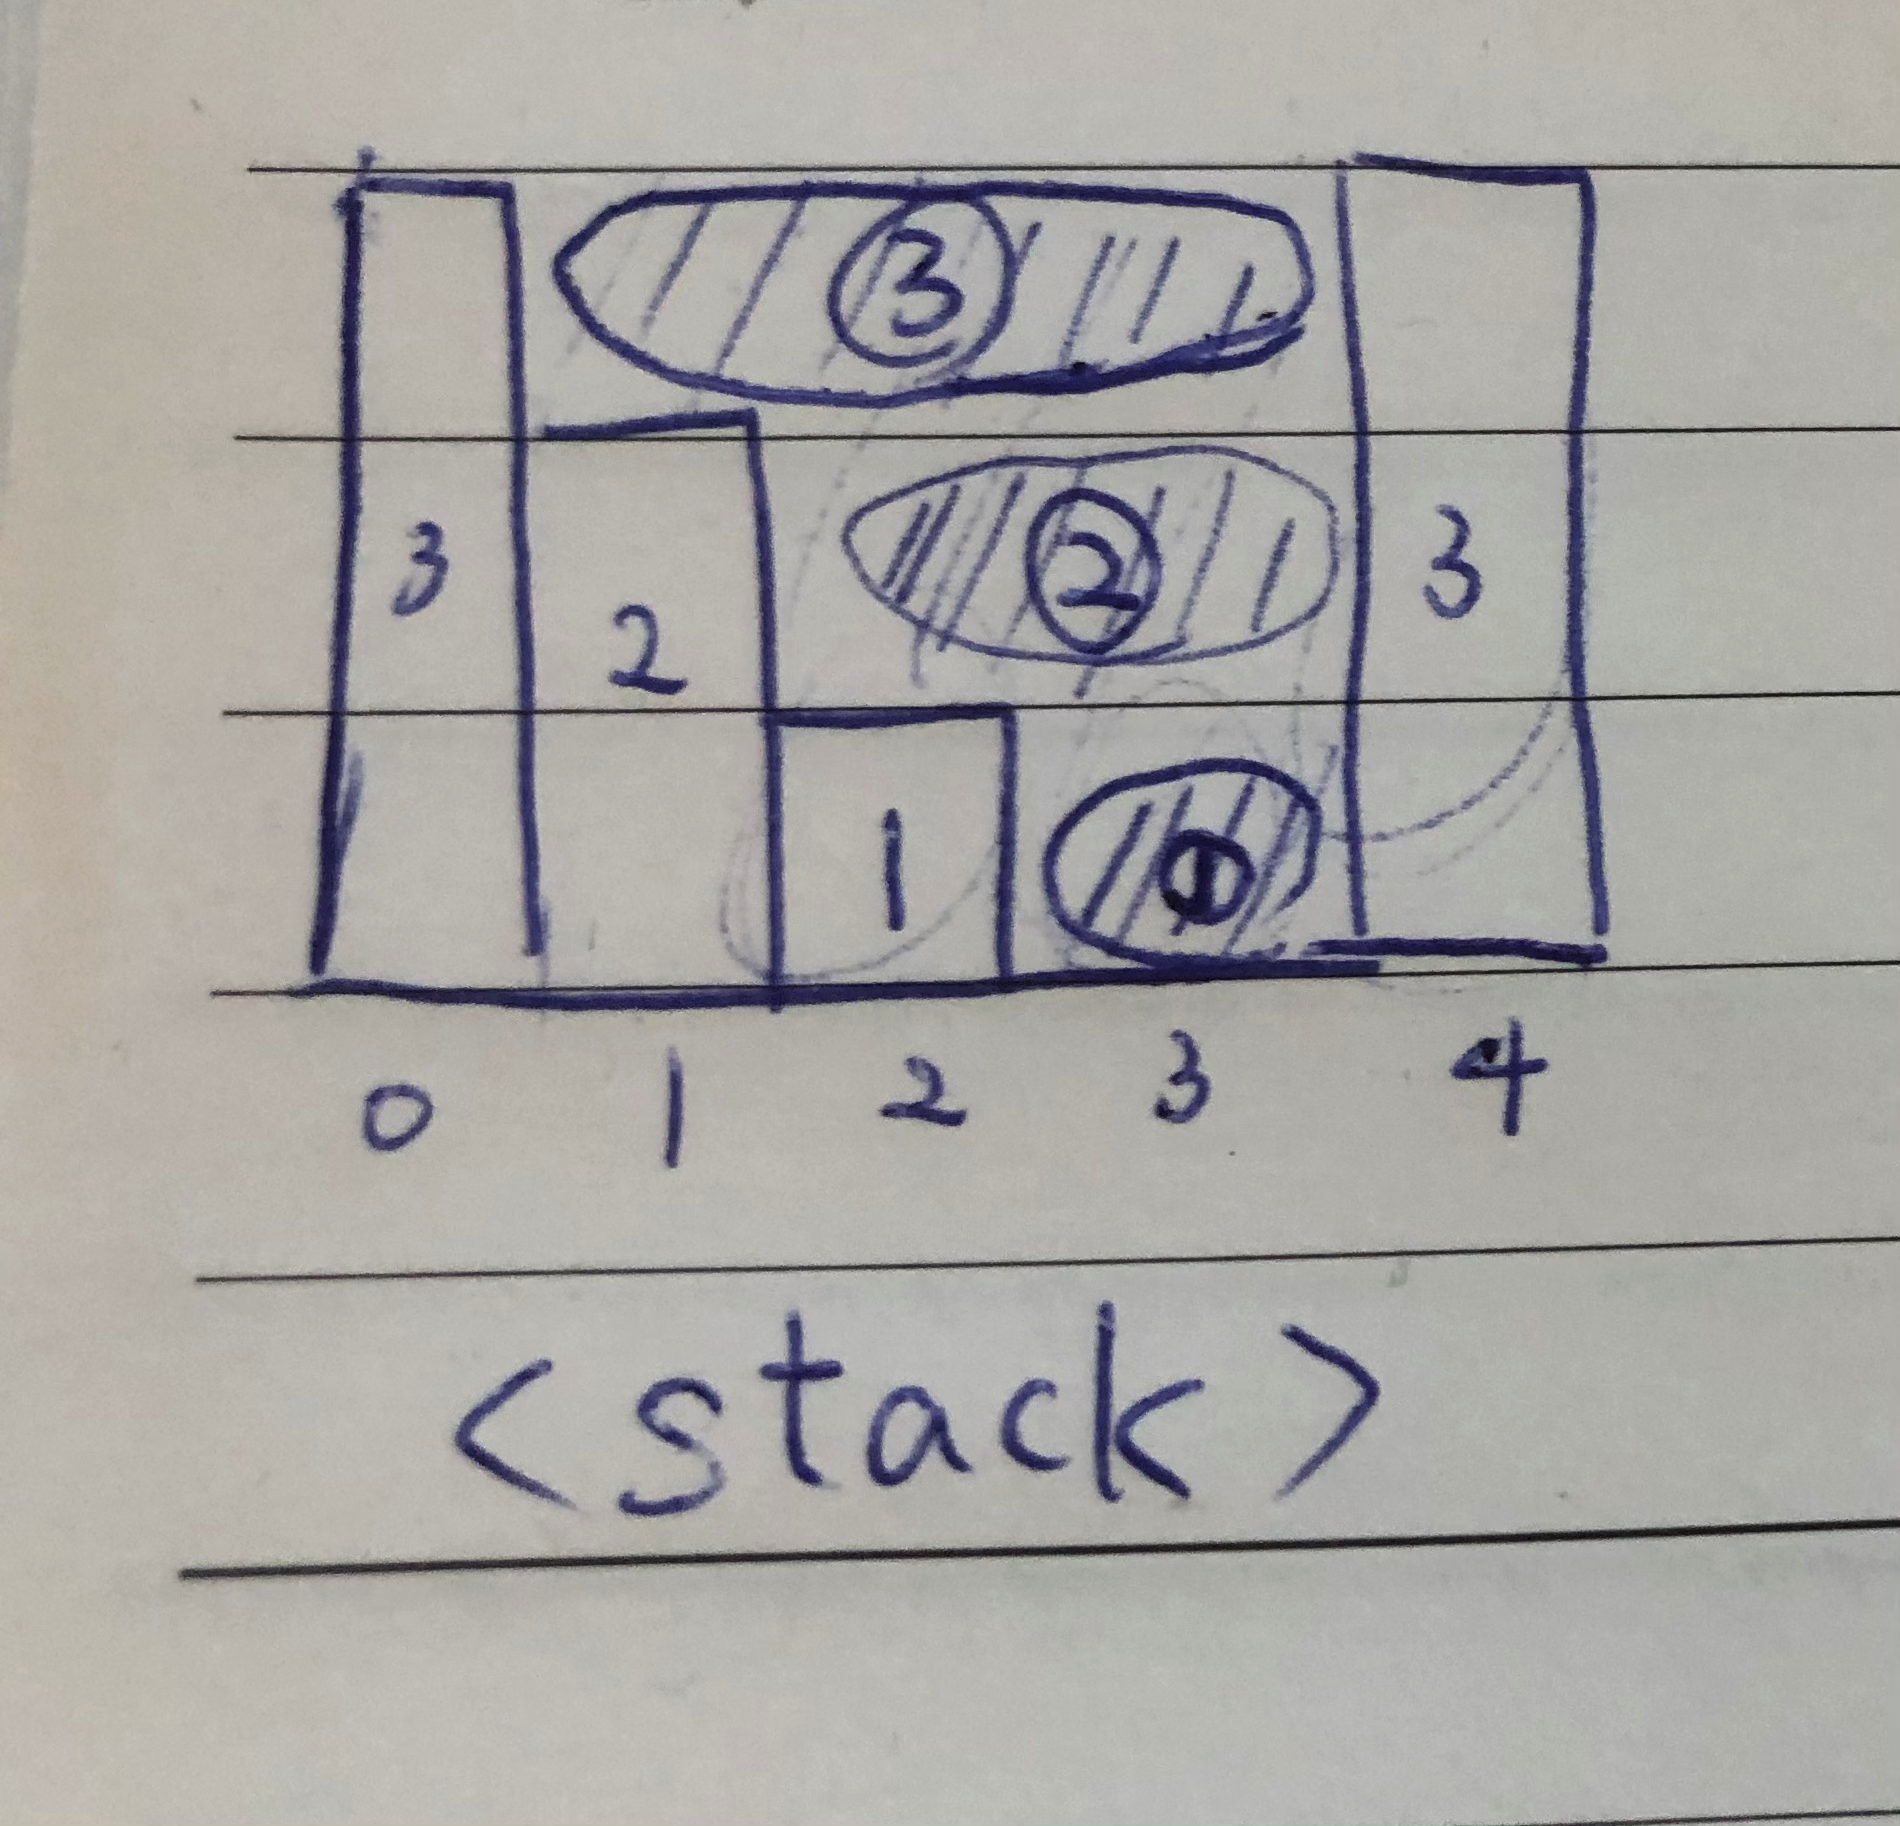 ③
3 2 ② 3
1 ①
0 1 2 3 4
<stack>